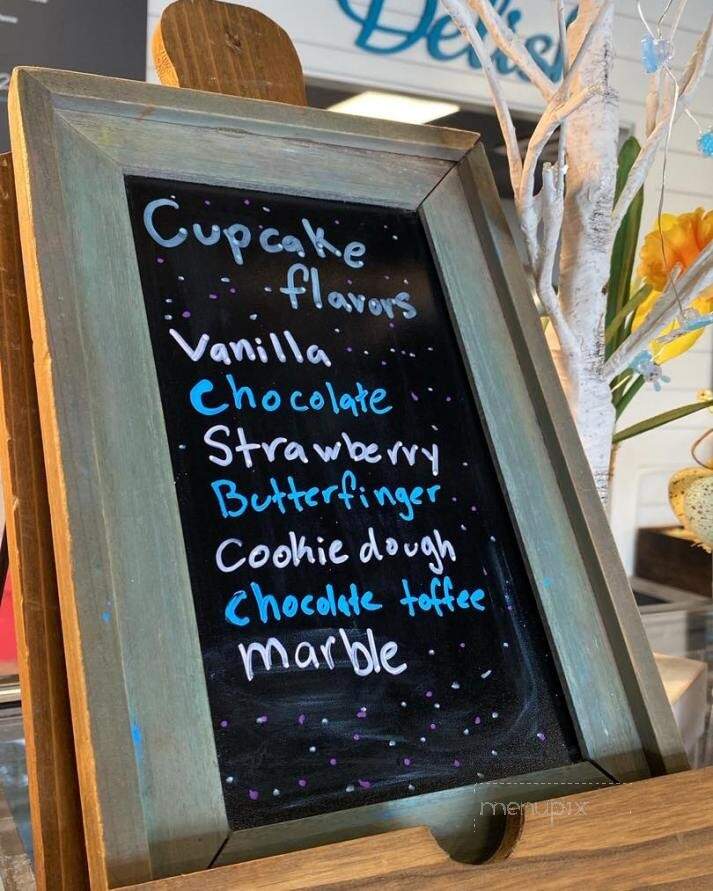 Delish
Cupcake
flavors
Vanilla
Chocolate
Strawberry
Butterfinger
Cookie dough
Chocolate toffee
marble
menupix